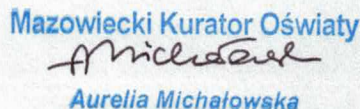 Mazowiecki Kurator Oświaty
AMichałowsk
Aurelia Michałowska